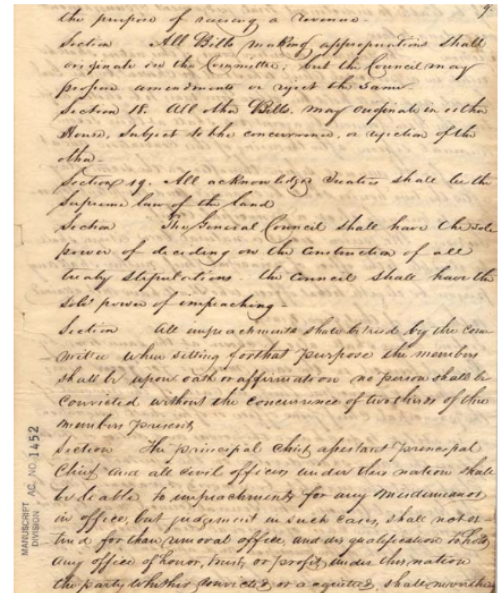 9
the purpose of raising a revenue.
Section All Bills making appropriations shall
originate in the Committee, but the Council may
propose amendments or reject the same.
Section 18. All other Bills may originate in either
House, subject to the concurrence, or rejection of the
other.
Section 19. All acknowledged Treaties shall be the
Supreme law of the land
Section The General Council shall have the sole
power of deciding on the Construction of all
treaty stipulations the Council shall have the
sole power of impeaching.
Section All impeachments shall be tried by the com-
mittee when sitting for that purpose the members
shall be upon oath or affirmation no person shall be
Convicted without the concurrence of two thirds of the
members present
Section The principal Chief, assistant principal
Chief and all civil officers under this nation shall
be liable to impeachments for any misdemeanor
in office, but judgement in such Cases, shall not ex-
tend further than removal office, and disqualification to hold
any office of honor, trust, or profit, under this nation
the party whether convicted or acquitted, shall neverthe
MANUSCRIPT
DIVISION AC. NO. 1452